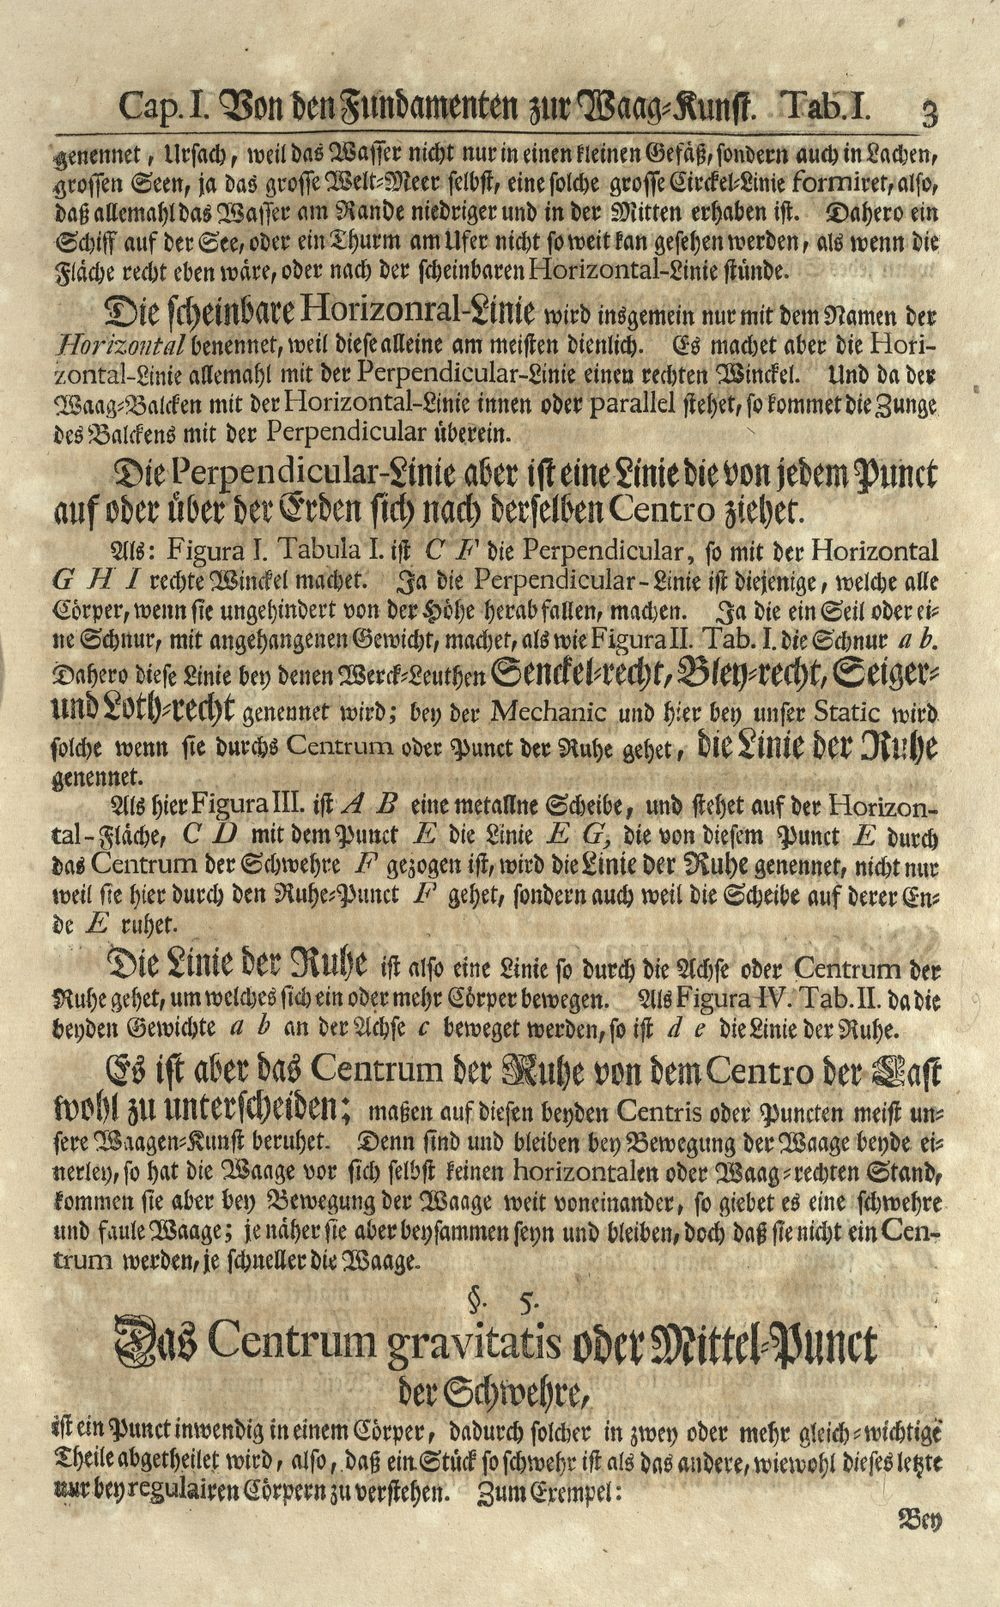 Cap. I. Von den Fundamenten zur Waag-Kunst. Tab. I. 3
genennet, Ursach, weil das Wasser nicht nur in einen kleinen Gefäß, sondern auch in Lachen,
grossen Seen, ja das grosse Welt-Meer selbst, eine solche grosse Circkel-Linie formiret, also,
daß allemahl das Wasser am Rande niedriger und in der Mitten erhaben ist. Dahero ein
Schiff auf der See, oder ein Thurm am Ufer nicht so weit kan gesehen werden, als wenn die
Fläche recht eben wäre, oder nach der scheinbaren Horizontal-Linie stünde.
Die scheinbare Horizonral-Linie wird insgemein nur mit dem Namen der
Horizontal benennet, weil diese alleine am meisten dienlich. Es machet aber die Hori-
zontal-Linie allemahl mit der Perpendicular-Linie einen rechten Winckel. Und da der
Waag-Balcken mit der Horizontal-Linie innen oder parallel stehet, so kommet die Zunge
des Balckens mit der Perpendicular überein.
Die Perpendicular-Linie aber ist eine Linie die von jedem Punct
auf oder über der Erden sich nach derselben Centro ziehet.
Als: Figura I. Tabula I. ist C F die Perpendicular, so mit der Horizontal
G H I rechte Winckel machet. Ja die Perpendicular-Linie ist diejenige, welche alle
Cörper, wenn sie ungehindert von der Höhe herab fallen, machen. Ja die ein Seil oder ei-
ne Schnur, mit angehangenen Gewicht, machet, als wie Figura II. Tab. I. die Schnur a b.
Dahero diese Linie bey denen Werck-Leuthen Senckel-recht, Bley-recht, Seiger-
und Loth-recht genennet wird; bey der Mechanic und hier bey unser Static wird
solche wenn sie durchs Centrum oder Punct der Ruhe gehet, die Linie der Ruhe
genennet.
Als hier Figura III. ist A B eine metallne Scheibe, und stehet auf der Horizon-
tal-Fläche, C D mit dem Punct E die Linie E G, die von diesem Punct E durch
das Centrum der Schwehre F gezogen ist, wird die Linie der Ruhe genennet, nicht nur
weil sie hier durch den Ruhe-Punct F gehet, sondern auch weil die Scheibe auf derer En-
de E ruhet.
Die Linie der Ruhe ist also eine Linie so durch die Achse oder Centrum der
Ruhe gehet, um welches sich ein oder mehr Cörper bewegen. Als Figura IV. Tab. II. da die
beyden Gewichte a b an der Achse c beweget werden, so ist d e die Linie der Ruhe.
Es ist aber das Centrum der Ruhe von dem Centro der Last
wohl zu unterscheiden; maßen auf diesen beyden Centris oder Puncten meist un-
sere Waagen-Kunst beruhet. Denn sind und bleiben bey Bewegung der Waage beyde ei-
nerley, so hat die Waage vor sich selbst keinen horizontalen oder Waag-rechten Stand,
kommen sie aber bey Bewegung der Waage weit voneinander, so giebet es eine schwehre
und faule Waage; je näher sie aber beysammen seyn und bleiben, doch daß sie nicht ein Cen-
trum werden, je schneller die Waage.
§. 5.
Das Centrum gravitatis oder Mittel-Punct
der Schwehre,
ist ein Punct inwendig in einem Cörper, dadurch solcher in zwey oder mehr gleich-wichtige
Theile abgetheilet wird, also, daß ein Stück so schwehr ist als das andere, wiewohl dieses letzte
nur bey regulairen Cörpern zu verstehen. Zum Exempel:
Bey